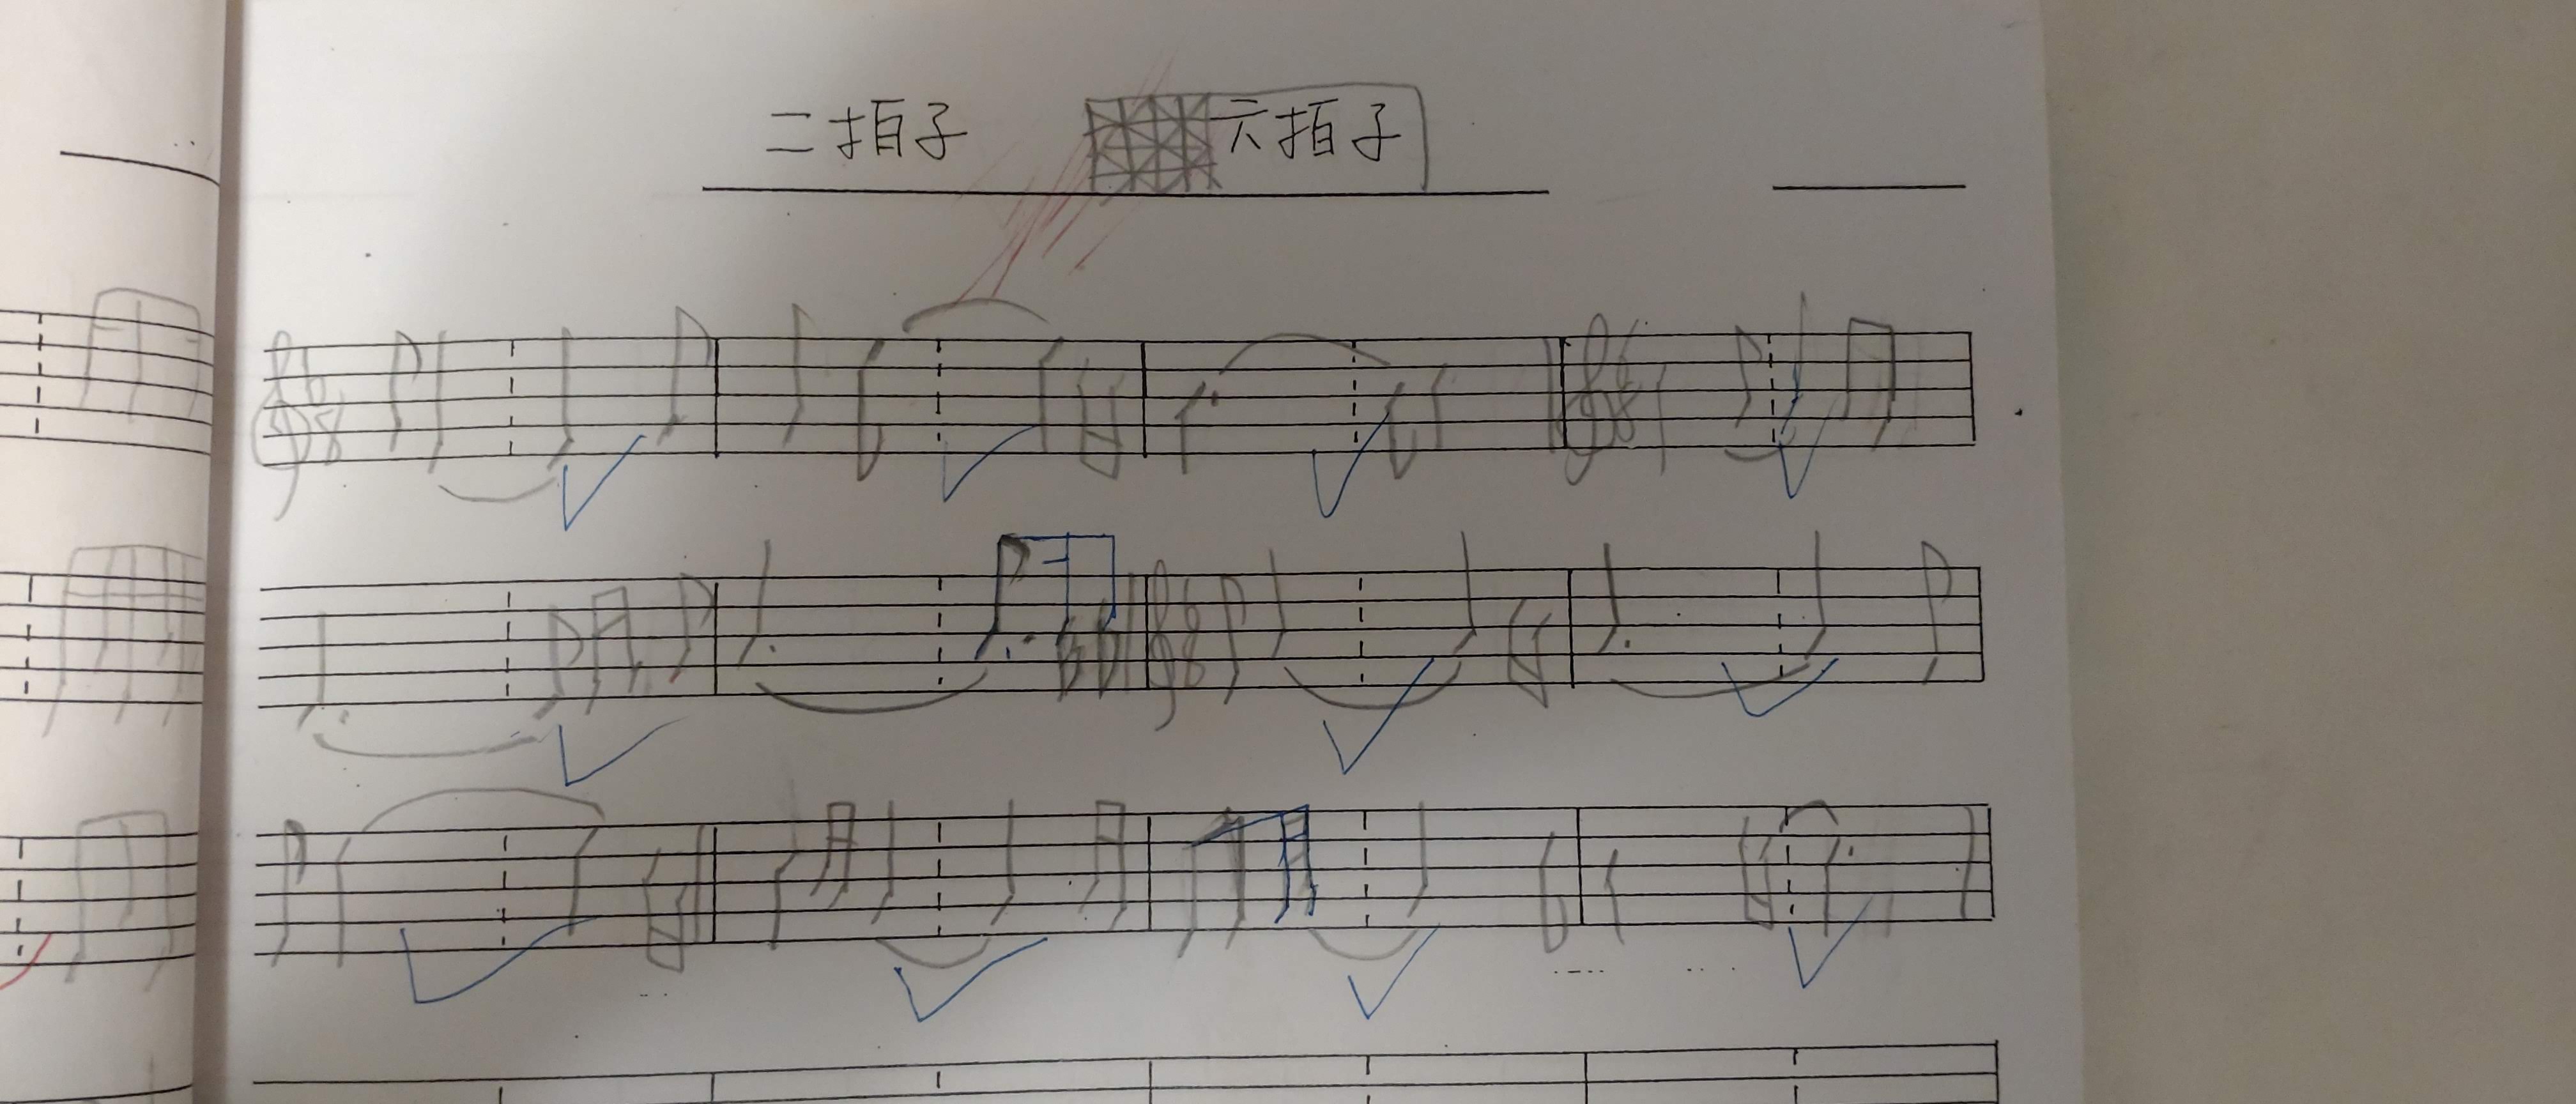 二拍子 六拍子